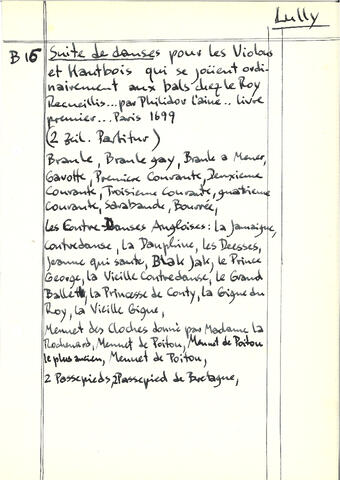 Lully
B 16 Suite de danses pour les Violons
et Hautbois qui se joüent ordi-
nairement aux bals chez le Roy
Recueillis... par Philidor l'ainé.. livre
premier... Paris 1699
(2 zeil. Partitur)
Branle, Branle gay, Branle a Mener,
Gavotte, Premiere Courante, Deuxieme
Courante, Troisieme Courante, quatrieme
Courante, Sarabande, Bourrée,
Les Contre-Danses Angloises: la Jamaique,
Contredanse, la Dauphine, les Deesses,
Jeanne qui saute, Blak Jak, le Prince
George, la Vieille Contredanse, le Grand
Ballet, la Princesse de Conty, la Gigue du
Roy, la Vieille Gigue,
Menuet des Cloches donné par Madame la
Rochenard, Menuet de Poitou, Menuet de Poitou
le plus ancien, Menuet de Poitou,
2 Passepieds, 2 Passepied de Bretagne,